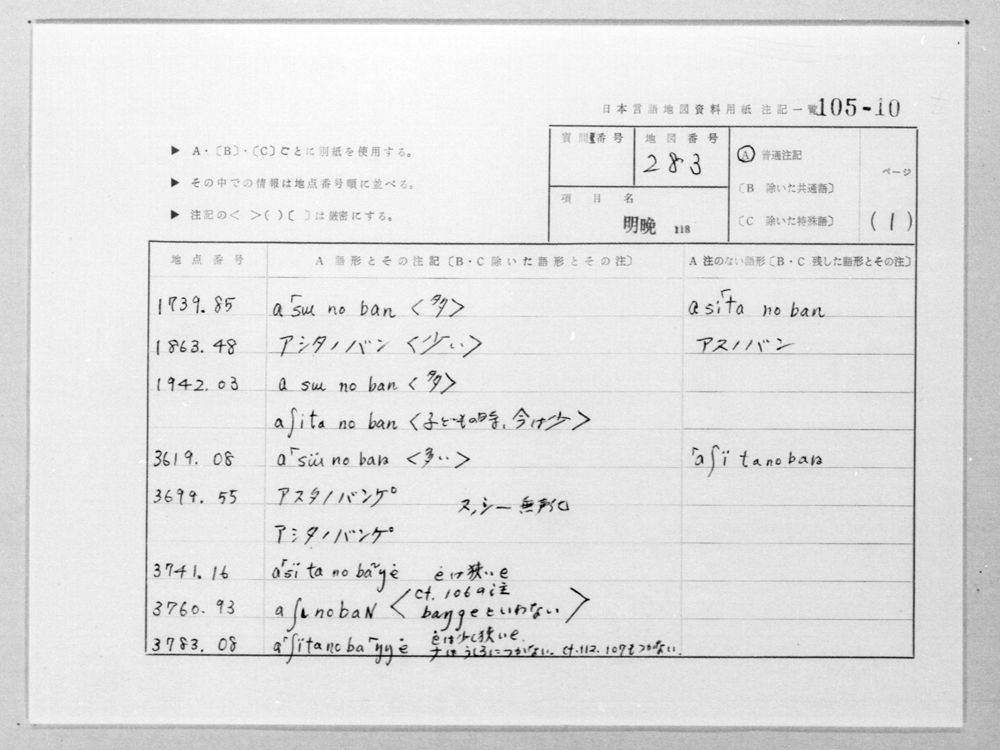 日本言語地図資料用紙 注記一覧 105-10
▶ A・〔B〕・〔C〕ごとに別紙を使用する。
▶ その中での情報は地点番号順に並べる。
▶ 注記の< >( )〔 〕は厳密にする。
質問番号
地図番号
283
項目名
明晩 118
Ⓐ 普通注記
〔B 除いた共通語〕
〔C 除いた特殊語〕
ページ
(1)
地点番号 A 語形とその注記〔B・C除いた語形とその注〕 A 注のない語形〔B・C残した語形とその注〕
1739.85 a「sɯ no ban <多> asi「ta no ban
1863.48 アシタノバン <少い> アスノバン
1942.03 a sɯ no ban <多>
aʃita no ban <子どもの時、今は少>
3619.08 a「sɯ̈ no baɴ <多い> 「aʃï tanobaɴ
3699.55 アスタノバンゲ° ス,シー無声化
アシタノバンゲ°
3741.16 a「sï ta no ba ŋė ėは狭いe
3760.93 aʃɩnobaN <cf. 106の注
baŋgeといわない>
3783.08 a「ʃïtanoba「ŋŋė ėは少し狭いe.
うしろにつかない. cf.112. 107もつかない.